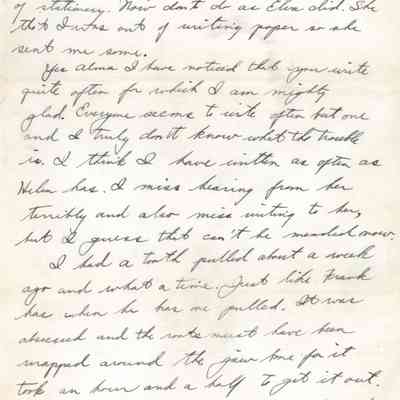 of stationery. Now don't do as Elva did. She
tho't I was out of writing paper so she
sent me some.
Yes Alma I have noticed that you write
quite often for which I am mighty
glad. Everyone seems to write often but one
and I truly don't know what the trouble
is. I think I have written as often as
Helen has. I miss hearing from her
terribly and also miss writing to her,
but I guess that can't be mended now.
I had a tooth pulled about a week
ago and what a time. Just like Frank
has when he has one pulled. It was
abscessed and the roots must have been
wrapped around the jaw bone for it
took an hour and a half to get it out.